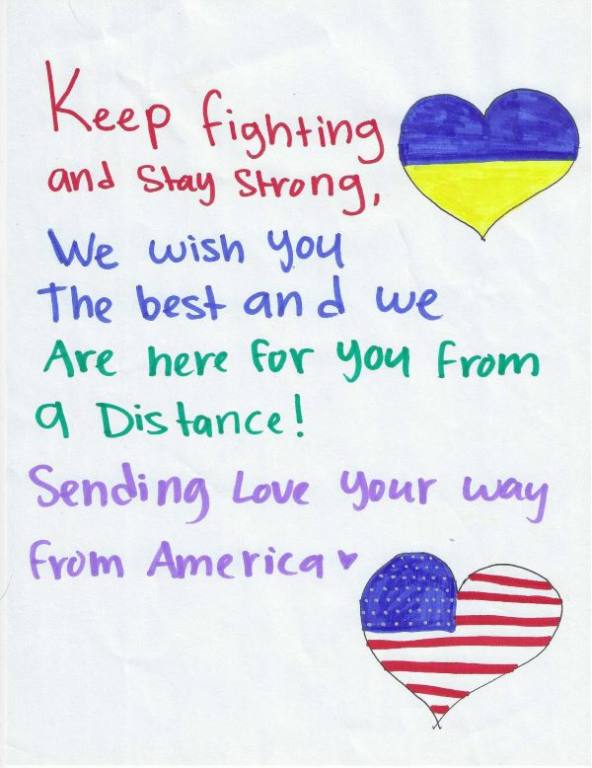 Keep fighting
and Stay Strong,
We wish you
The best and we
Are here for you from
a Distance!
Sending Love your way
from America ♥